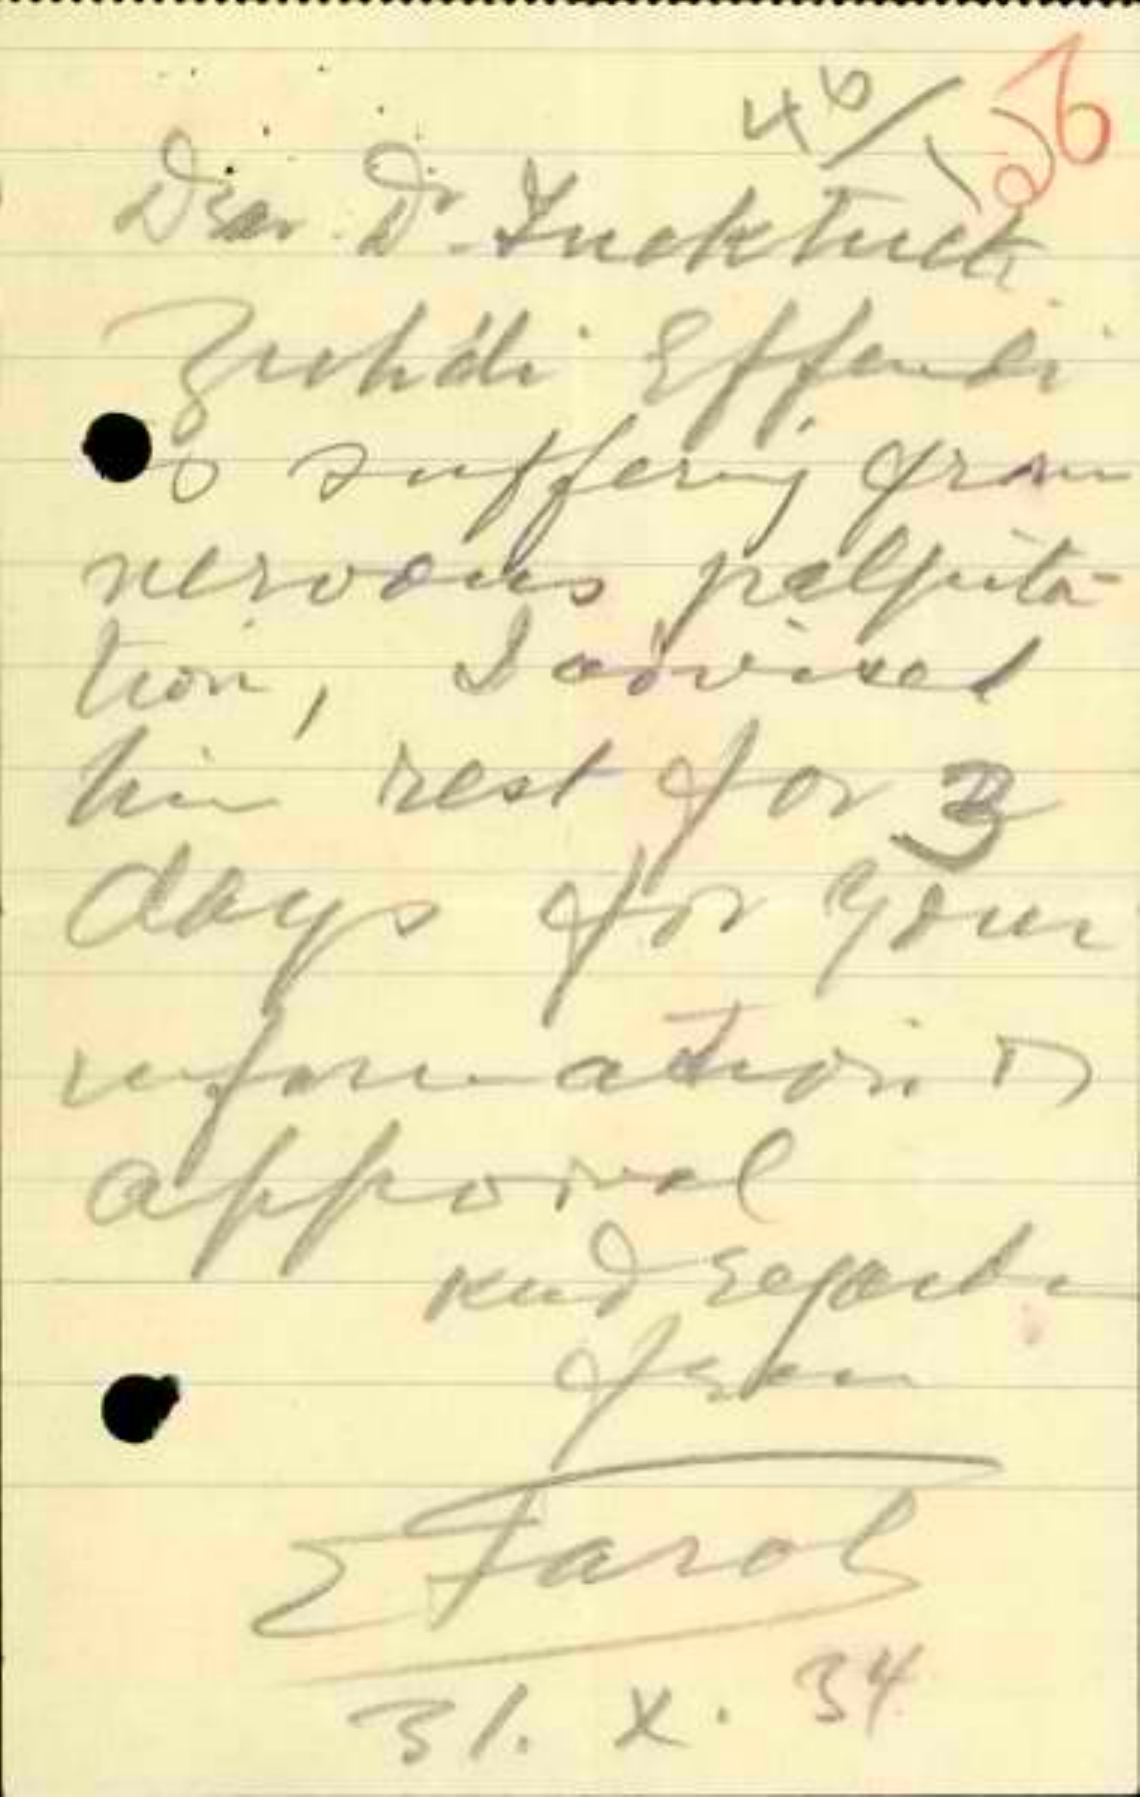 46/
26
Dear Dr.
Zuhdi Effendi
is suffering from
nervous palpita-
tion, I advised
him rest for 3
days for your
information &
approval
Kind regards
from
31. X. 34